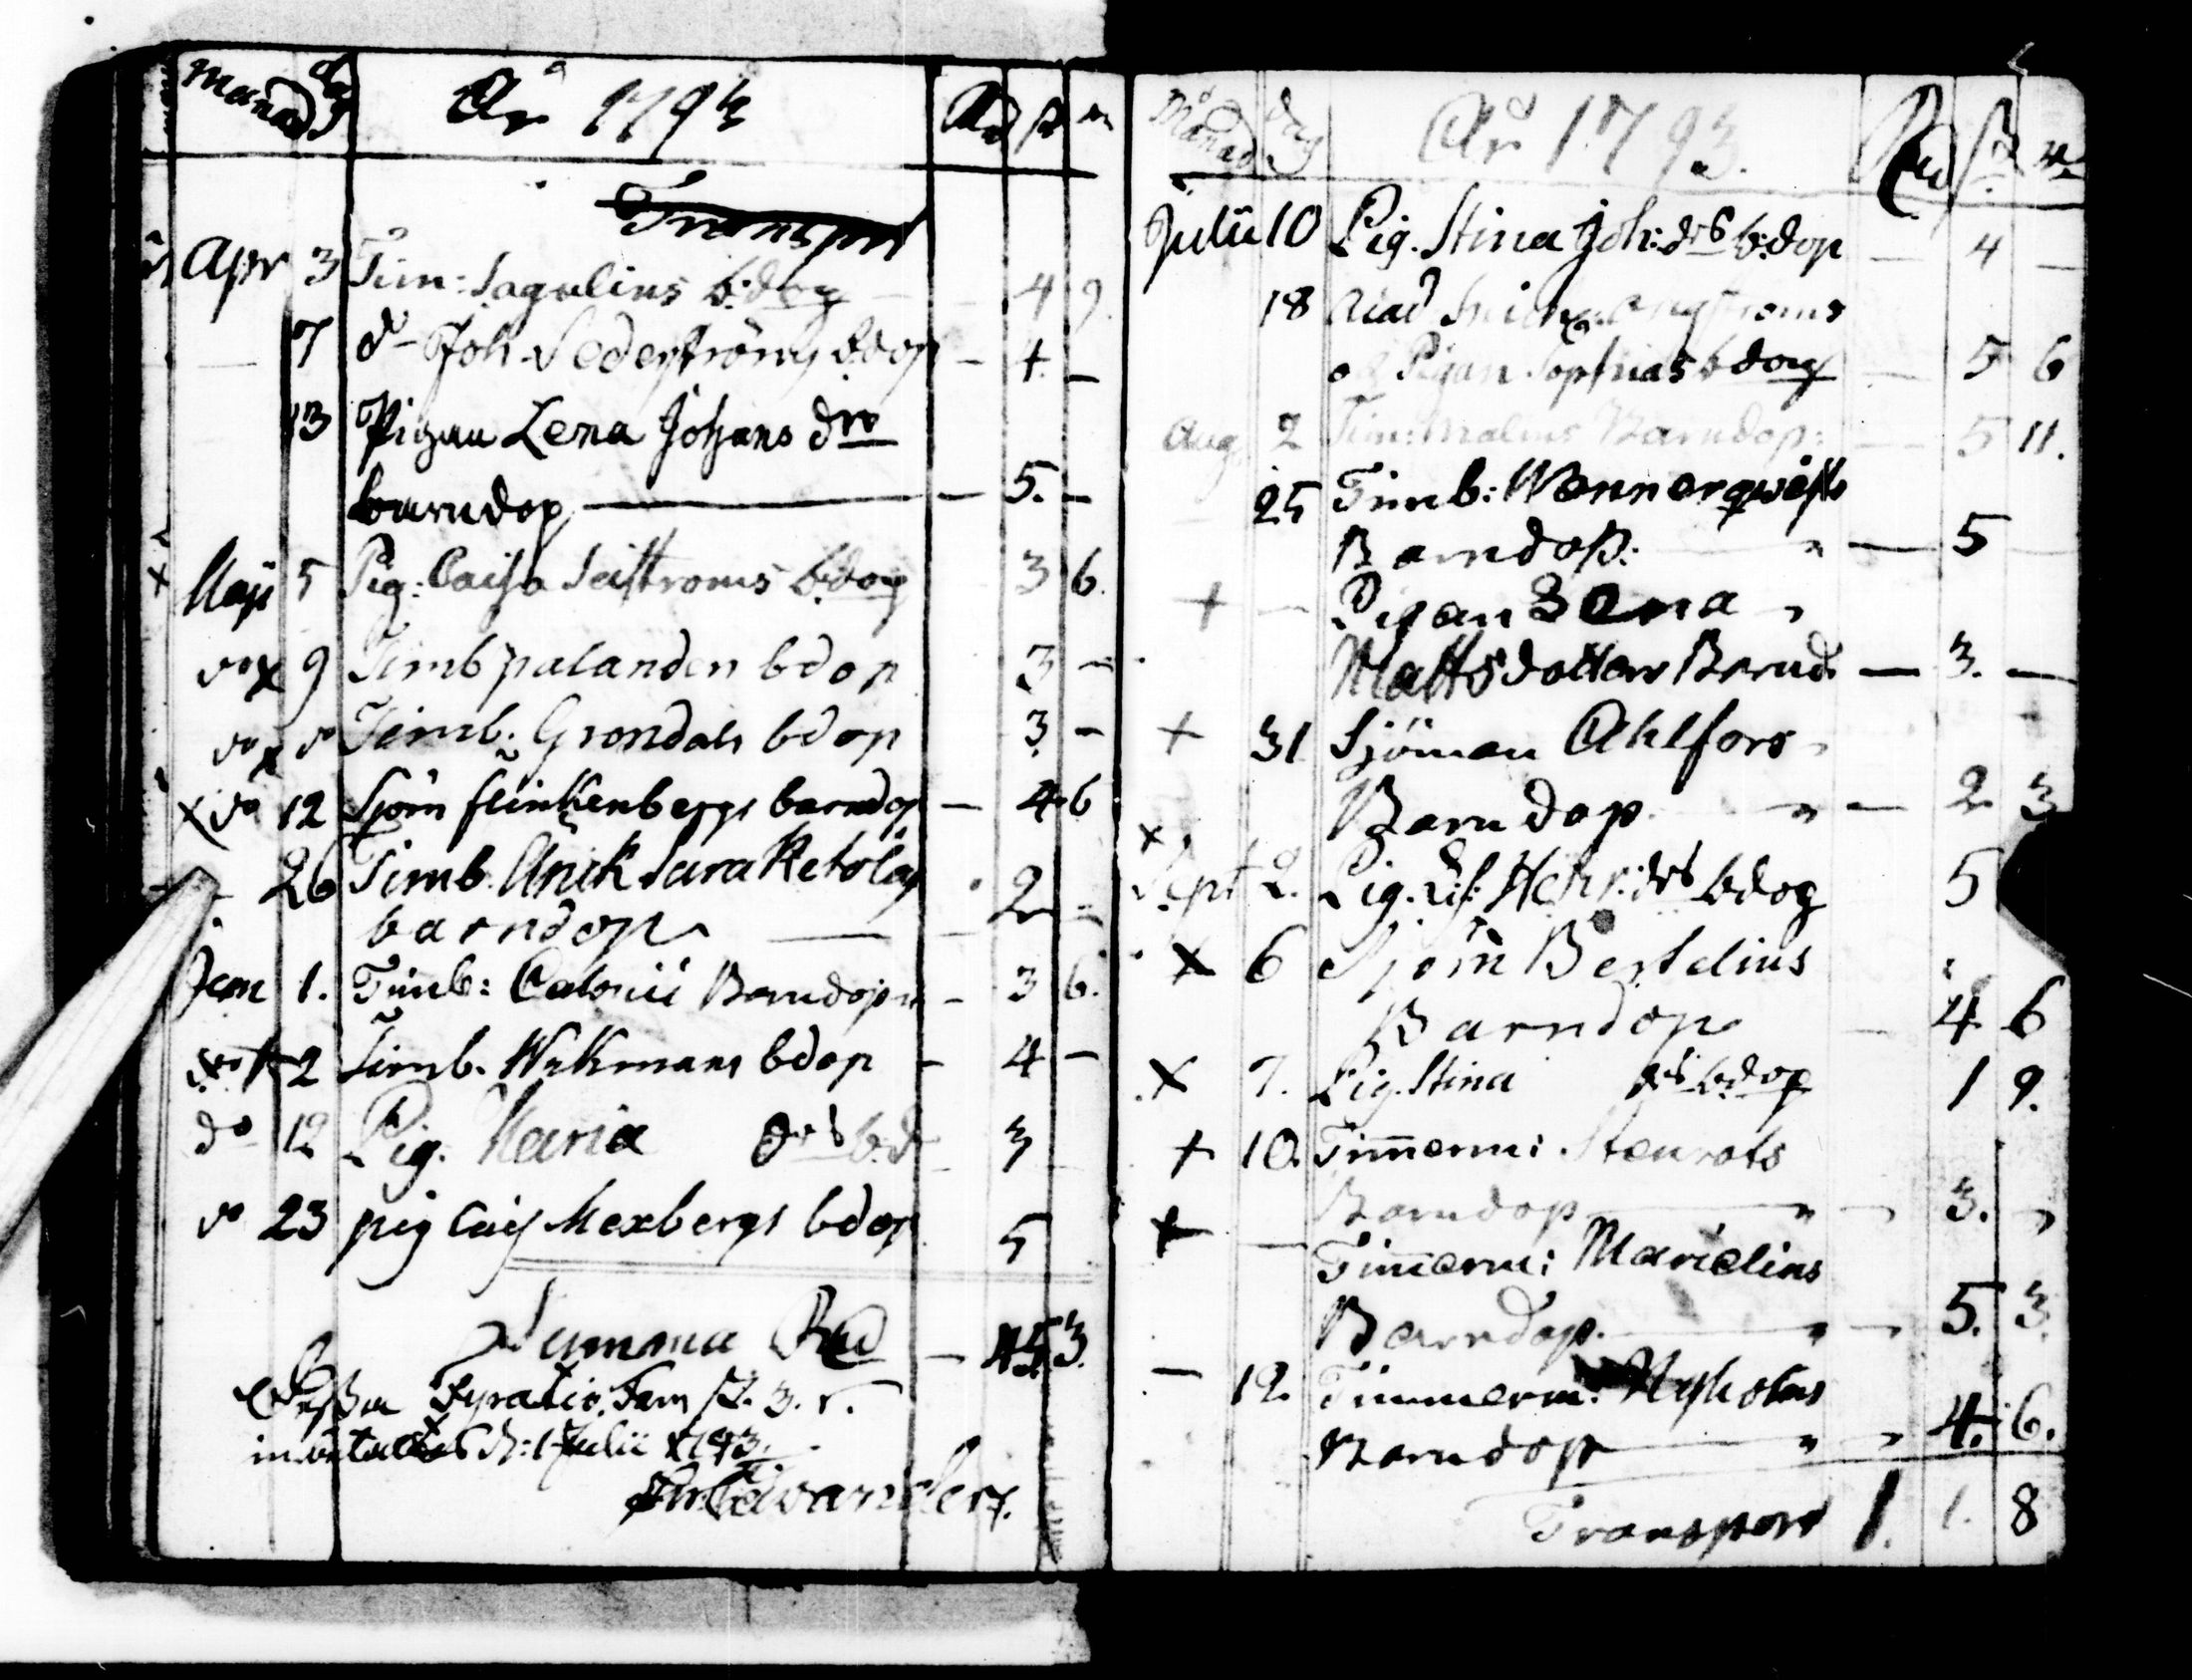 Månad dag År 1793 Rd ß rn
Transport
Apr 3 Tim: Sagulins b:dop 4 9.
7 do Joh. Sederströms bdop - 4. -
13 Pigan Lena Johans drs
barndop - 5. -
Maji 5 Pig: Caisa Seiströms b:dop 3 6.
do x 9 Timb palanden bdop 3 -
do x do Timb. Gröndals bdop 3. -
x do 12 Sjöm flinkenbergs barndop - 4 6
26 Timb. Anik Sara Ketolas
barndop - 2 -
Jun 1. Timb: Calonii Barndop - 3 6.
do + 2 Timb. Wikmans bdop - 4 -
do 12 Pig. Maria drs b.d 3
do 23 pig Caij Mexbergs bdop 5
Summa Rd - 45 3.
Fyratio Fem ß. 3. r.
d: 1 Julii 1793.
Månad dag År 1793. Rd ß r
Julii 10 Pig. Stina Joh: drs b:dop - 4 -
18
Pigan Sophias bdop - 5 6
Aug. 2 Tim: Malms Barndop: - 5 11.
25 Timb: Wennerqwists
Barndop: " - 5
+ - Pigan Lena
Mattsdotters Barnd. - 3. -
+ 31 Sjöman Ahlfors
Barndop. " - 2 3
x
Sept 2. Pig. Lis: Henr: drs bdop 5
x 6 Sjöm Bertelius
Barndop - 4 6
x 7. Pig. Stina drs b:dop 1 9.
+ 10. Timerm: Stenrots
Barndop " - 3. -
+ - Timerm: Marielins
Barndop. " - 5. 3.
- 12. Timmerm: Nyholms
Barndop " - 4. 6.
Transport 1. 1. 8